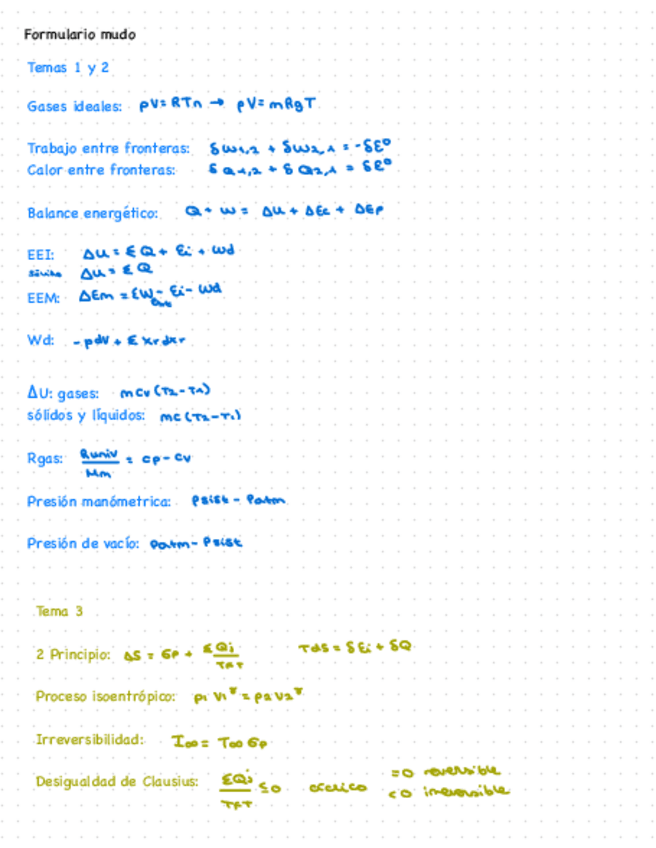 Formulario mudo
Temas 1 y 2
Gases ideales: pV=RTn → pV=mRgT
Trabajo entre fronteras: δW1,2 + δW2,1 = -δE⁰
Calor entre fronteras: δQ1,2 + δQ2,1 = δE⁰
Balance energético: Q + W = ΔU + ΔEc + ΔEp
EEI: ΔU = ΣQ + Ei + Wd
ΔU = ΣQ
EEM: ΔEm = ΣW - Ei - Wd
Wd: -pdV + Σ Xr dxr
ΔU: gases: mCv(T2-T1)
sólidos y líquidos: mc(T2-T1)
Rgas: Runiv/Mm = cp - cv
Presión manómetrica: Psist - Patm
Presión de vacío: Patm - Psist
Tema 3
2 Principio: ΔS = σp + ΣQi/TFT TdS = δEi + δQ
Proceso isoentrópico: p1 V1^γ = p2 V2^γ
Irreversibilidad: I∞ = T∞ σp
Desigualdad de Clausius: ΣQi/TFT ≤0 cíclico =0 reversible
<0 irreversible